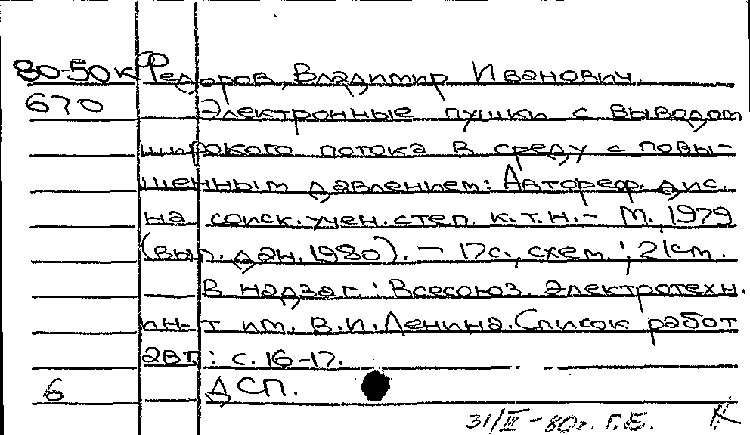 80-50к Федоров, Владимир Иванович.
670 Электронные пушки с выводом
широкого потока в среду с повы-
шенным давлением: Автореф. дис.
на соиск. учен. степ. к.т.н. - М., 1979
(вып. дан. 1980). - 17с., схем.; 21см.
В надзаг.: Всесоюз. электротехн.
ин-т им. В.И.Ленина. Список работ
авт.: с. 16-17.
6 ДСП.
31/III-80г. Г.Б. К